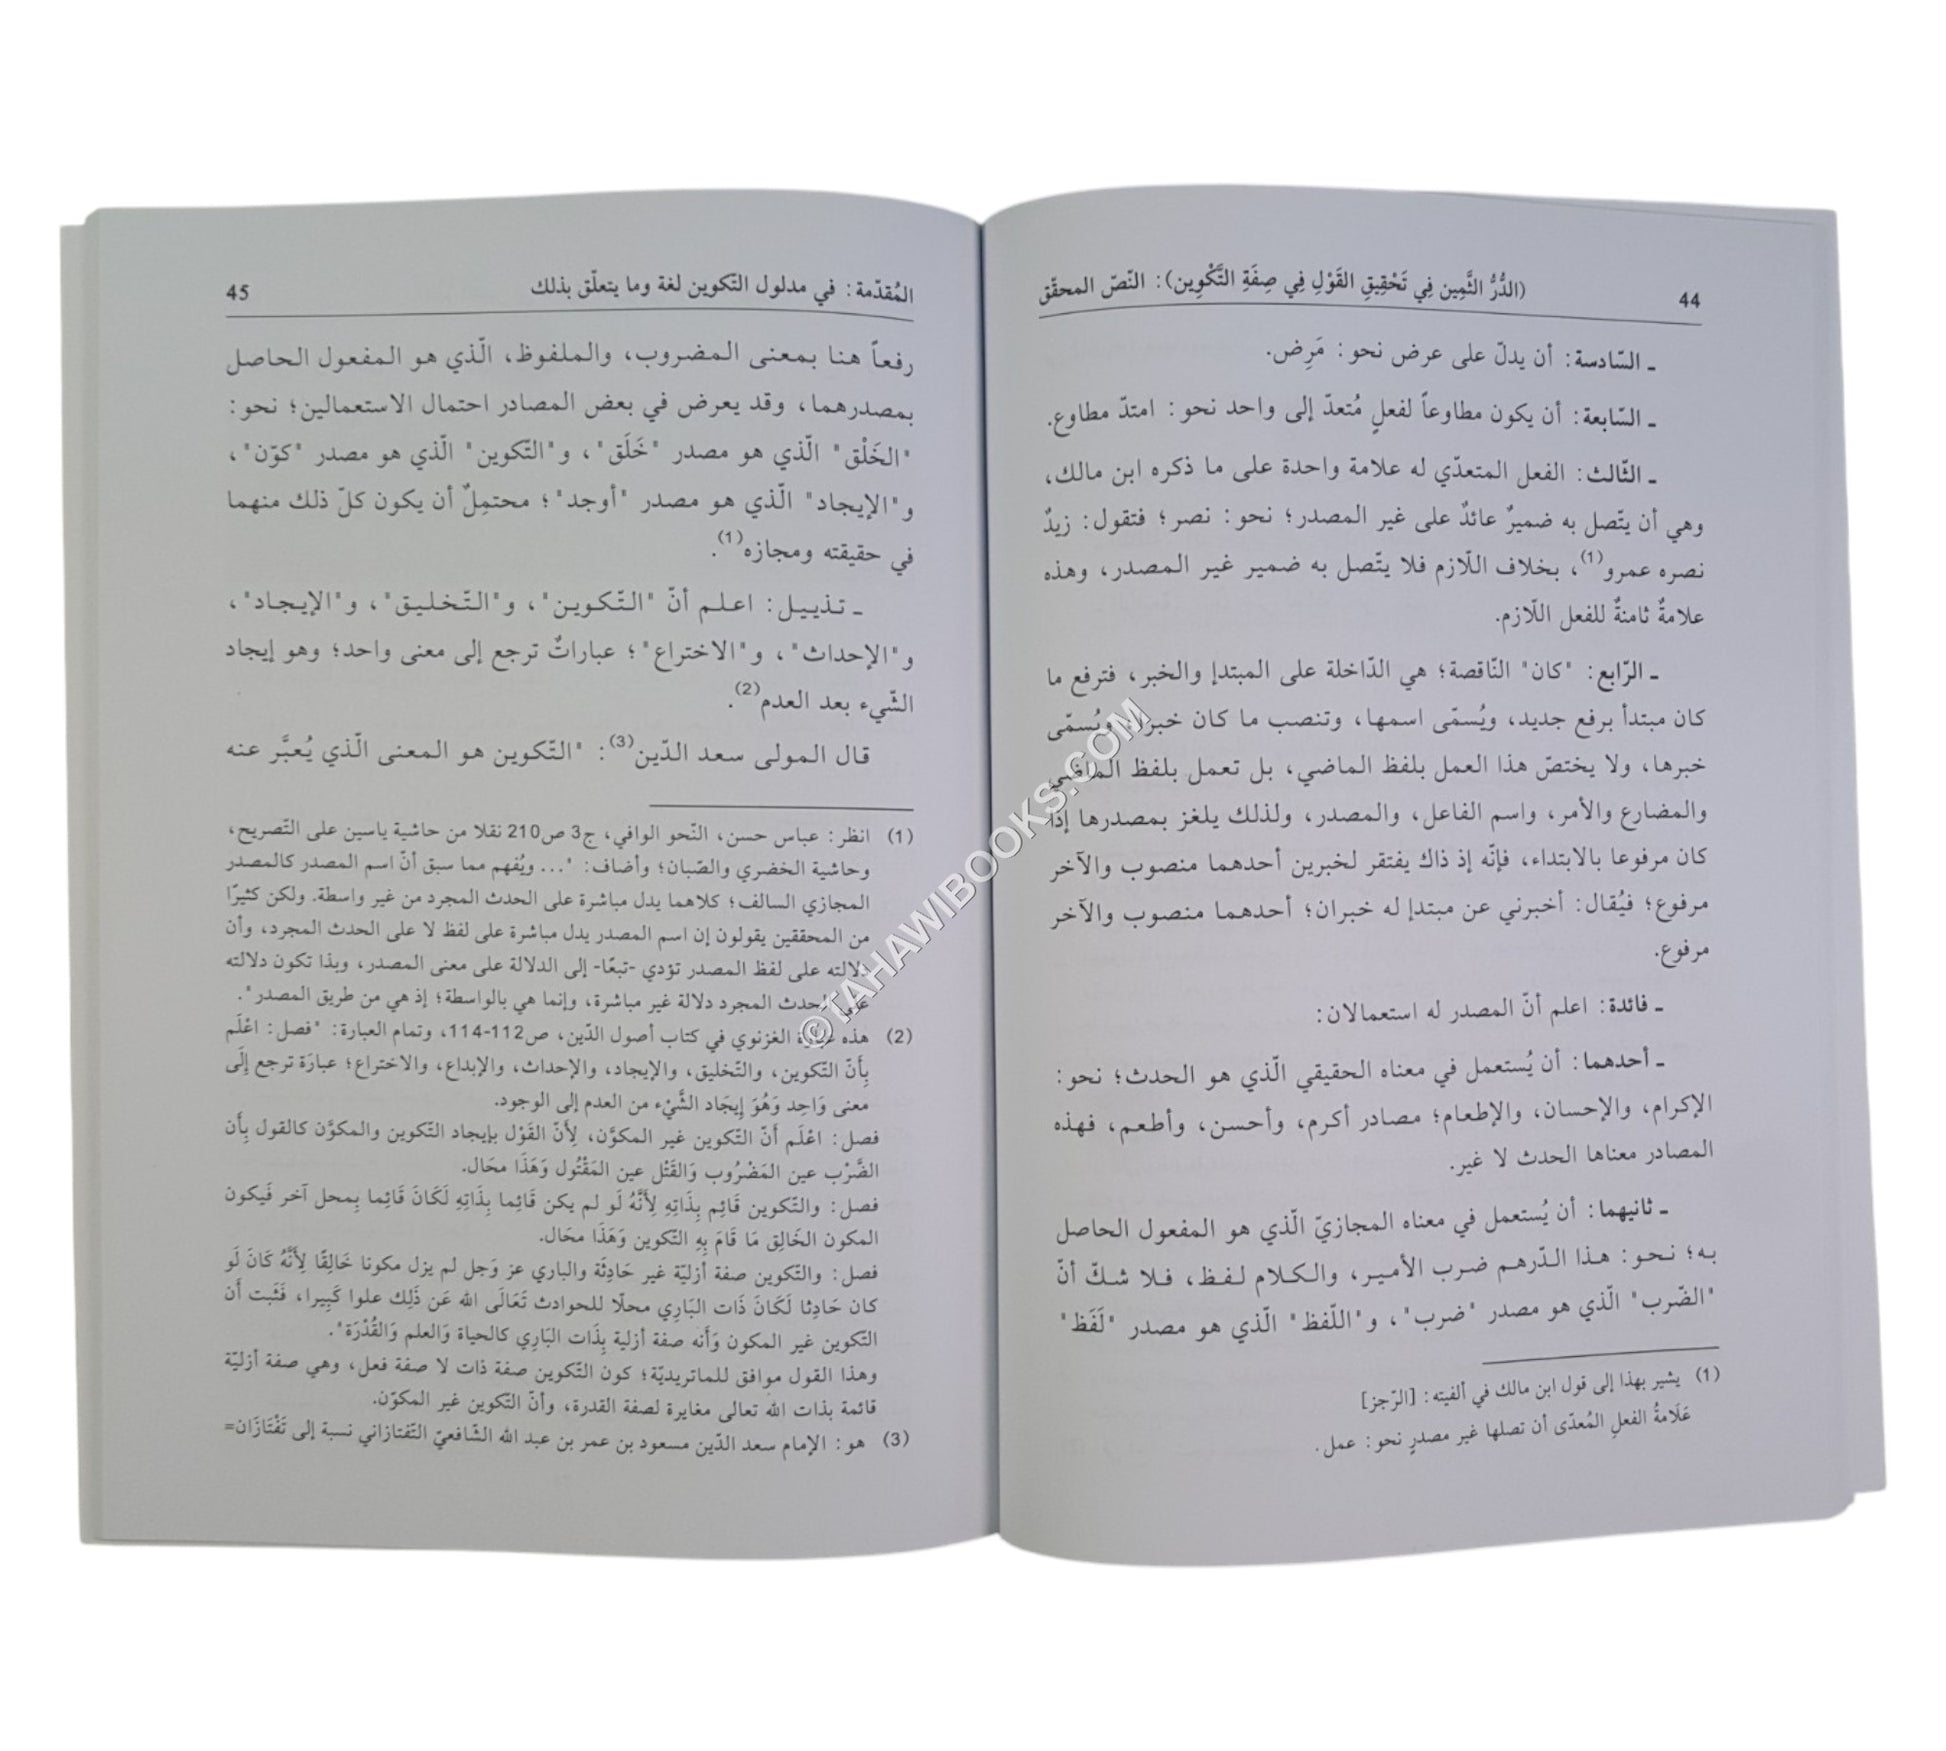 44 (الدُّرُّ الثَّمِين فِي تَحْقِيقِ القَوْلِ فِي صِفَةِ التَّكْوِين): النّصّ المحقّق
ـ السّادسة: أن يدلّ على عرض نحو: مَرِض.
ـ السّابعة: أن يكون مطاوعاً لفعلٍ مُتعدّ إلى واحد نحو: امتدّ مطاوع.
ـ الثّالث: الفعل المتعدّي له علامة واحدة على ما ذكره ابن مالك،
وهي أن يتّصل به ضميرٌ عائدٌ على غير المصدر؛ نحو: نصر؛ فتقول: زيدٌ
نصره عمرو(1)، بخلاف اللّازم فلا يتّصل به ضمير غير المصدر، وهذه
علامةٌ ثامنةٌ للفعل اللّازم.
ـ الرّابع: "كان" النّاقصة؛ هي الدّاخلة على المبتدإ والخبر، فترفع ما
كان مبتدأ برفع جديد، ويُسمّى اسمها، وتنصب ما كان خبراً، ويُسمّى
خبرها، ولا يختصّ هذا العمل بلفظ الماضي، بل تعمل بلفظ الماضي
والمضارع والأمر، واسم الفاعل، والمصدر، ولذلك يلغز بمصدرها إذا
كان مرفوعا بالابتداء، فإنّه إذ ذاك يفتقر لخبرين أحدهما منصوب والآخر
مرفوع؛ فيُقال: أخبرني عن مبتدإ له خبران؛ أحدهما منصوب والآخر
مرفوع.
ـ فائدة: اعلم أنّ المصدر له استعمالان:
ـ أحدهما: أن يُستعمل في معناه الحقيقي الّذي هو الحدث؛ نحو:
الإكرام، والإحسان، والإطعام؛ مصادر أكرم، وأحسن، وأطعم، فهذه
المصادر معناها الحدث لا غير.
ـ ثانيهما: أن يُستعمل في معناه المجازيّ الّذي هو المفعول الحاصل
به؛ نحو: هذا الدّرهم ضرب الأمير، والكلام لفظ، فلا شكّ أنّ
"الضّرب" الّذي هو مصدر "ضرب"، و"اللّفظ" الّذي هو مصدر "لَفَظ"
(1) يشير بهذا إلى قول ابن مالك في ألفيته: [الرّجز]
عَلَامةُ الفعلِ المُعدّى أن تصلها غير مصدرٍ نحو: عمل.
المُقدّمة: في مدلول التّكوين لغة وما يتعلّق بذلك 45
رفعاً هنا بمعنى المضروب، والملفوظ، الّذي هو المفعول الحاصل
بمصدرهما، وقد يعرض في بعض المصادر احتمال الاستعمالين؛ نحو:
"الخَلْق" الّذي هو مصدر "خَلَق"، و"التّكوين" الّذي هو مصدر "كوّن"،
و"الإيجاد" الّذي هو مصدر "أوجد"؛ محتمِلٌ أن يكون كلّ ذلك منهما
في حقيقته ومجازه(1).
ـ تذييل: اعلم أنّ "التّكوين"، و"التّخليق"، و"الإيجاد"،
و"الإحداث"، و"الاختراع"؛ عباراتٌ ترجع إلى معنى واحد؛ وهو إيجاد
الشّيء بعد العدم(2).
قال المولى سعد الدّين(3): "التّكوين هو المعنى الّذي يُعبَّر عنه
(1) انظر: عباس حسن، النّحو الوافي، ج3 ص210 نقلا من حاشية ياسين على التّصريح،
وحاشية الخضري والصّبان؛ وأضاف: "... ويُفهم مما سبق أنّ اسم المصدر كالمصدر
المجازي السالف؛ كلاهما يدل مباشرة على الحدث المجرد من غير واسطة. ولكن كثيرًا
من المحققين يقولون إن اسم المصدر يدل مباشرة على لفظ لا على الحدث المجرد، وأن
دلالته على لفظ المصدر تؤدي -تبعًا- إلى الدلالة على معنى المصدر، وبذا تكون دلالته
على الحدث المجرد دلالة غير مباشرة، وإنما هي بالواسطة؛ إذ هي من طريق المصدر".
(2) هذه عبارة الغزنوي في كتاب أصول الدّين، ص112-114، وتمام العبارة: "فصل: اعْلَم
بِأَنّ التّكوين، والتّخليق، والإيجاد، والإحداث، والإبداع، والاختراع؛ عبارَة ترجع إِلَى
معنى وَاحِد وَهُوَ إِيجَاد الشَّيْء من العدم إلى الوجود.
فصل: اعْلَم أَنّ التّكوين غير المكوَّن، لِأَنّ القَوْل بإيجاد التّكوين والمكوَّن كالقول بِأَن
الضَّرْب عين المَضْرُوب وَالقَتْل عين المَقْتُول وَهَذَا محَال.
فصل: والتّكوين قَائِم بِذَاتِهِ لِأَنَّهُ لَو لم يكن قَائِما بِذَاتِهِ لَكَانَ قَائِما بِمحل آخر فَيكون
المكون الخَالِق مَا قَامَ بِهِ التّكوين وَهَذَا محَال.
فصل: والتّكوين صفة أزليّة غير حَادِثَة والباري عز وَجل لم يزل مكونا خَالِقًا لِأَنَّهُ كَانَ لَو
كان حَادِثا لَكَانَ ذَات البَارِي محلّا للحوادث تَعَالَى الله عَن ذَلِك علوا كَبِيرا، فَثَبت أَن
التّكوين غير المكون وَأَنه صفة أزلية بِذَات البَارِي كالحياة وَالعلم وَالقُدْرَة".
وهذا القول موافق للماتريديّة؛ كون التّكوين صفة ذات لا صفة فعل، وهي صفة أزليّة
قائمة بذات الله تعالى مغايرة لصفة القدرة، وأنّ التّكوين غير المكوّن.
(3) هو: الإمام سعد الدّين مسعود بن عمر بن عبد الله الشّافعيّ التّفتازاني نسبة إلى تَفْتَازَان=
©TAHAWIBOOKS.COM